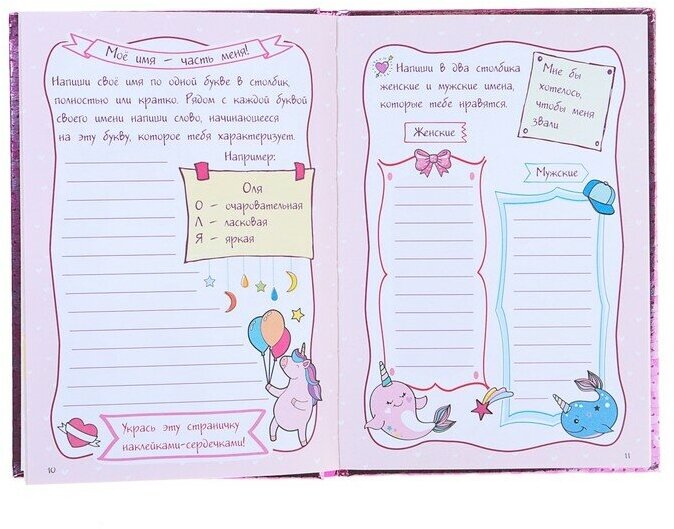 Моё имя – часть меня!
Напиши своё имя по одной букве в столбик
полностью или кратко. Рядом с каждой буквой
своего имени напиши слово, начинающееся
на эту букву, которое тебя характеризует.
Например:
Оля
О - очаровательная
Л - ласковая
Я - яркая
Укрась эту страничку
наклейками-сердечками!
10
Напиши в два столбика
женские и мужские имена,
которые тебе нравятся.
Мне бы
хотелось,
чтобы меня
звали
Женские
Мужские
11